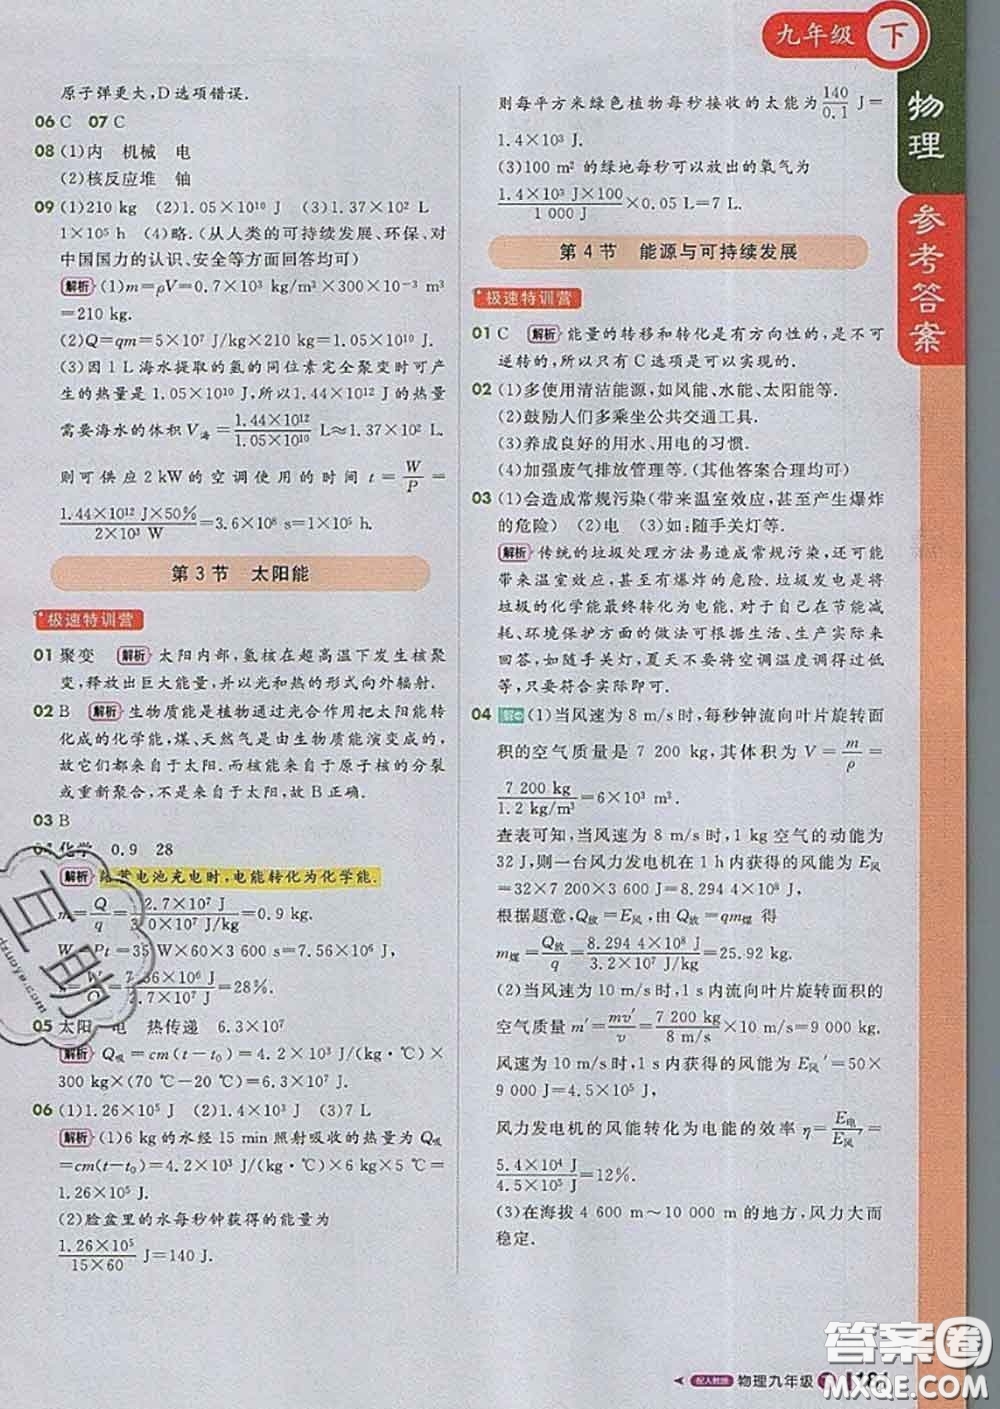 九年级 下
物理
参考答案
原子弹更大,D选项错误.
06 C 07 C
08 (1)内 机械 电
(2)核反应堆 铀
09 (1)210 kg (2)1.05×10¹⁰ J (3)1.37×10² L
1×10⁵ h (4)略.(从人类的可持续发展、环保、对
中国国力的认识、安全等方面回答均可)
解析 (1)m=ρV=0.7×10³ kg/m³×300×10⁻³ m³
=210 kg.
(2)Q=qm=5×10⁷ J/kg×210 kg=1.05×10¹⁰ J.
(3)因1 L海水提取的氢的同位素完全聚变时可产
生的热量是1.05×10¹⁰ J,获得1.44×10¹² J的热量
需要海水的体积V海=1.44×10¹²/1.05×10¹⁰ L≈1.37×10² L.
则可供应2 kW的空调使用的时间t=W/P=
1.44×10¹² J×50%/2×10³ W=3.6×10⁸ s=1×10⁵ h.
第3节 太阳能
极速特训营
01 聚变 解析 太阳内部,氢核在超高温下发生核聚
变,释放出巨大能量,并以光和热的形式向外辐射.
02 B 解析 生物质能是植物通过光合作用把太阳能转
化成的化学能,煤、天然气是由生物质能演变成的,
故它们都来自于太阳.而核能来自于原子核的分裂
或重新聚合,不是来自于太阳,故B正确.
03 B
04 化学 0.9 28
解析 电池充电时,电能转化为化学能.
m=Q/q=2.7×10⁷ J/3.0×10⁷ J/kg=0.9 kg.
W=Pt=35 W×60×3 600 s=7.56×10⁶ J,
=W/Q=7.56×10⁶ J/2.7×10⁷ J=28%.
05 太阳 电 热传递 6.3×10⁷
解析 Q吸=cm(t-t₀)=4.2×10³ J/(kg·℃)×
300 kg×(70 ℃-20 ℃)=6.3×10⁷ J.
06 (1)1.26×10⁵ J (2)1.4×10³ J (3)7 L
解析 (1)6 kg的水经15 min照射吸收的热量为Q吸
=cm(t-t₀)=4.2×10³ J/(kg·℃)×6 kg×5 ℃=
1.26×10⁵ J.
(2)脸盆里的水每秒钟获得的能量为
1.26×10⁵/15×60 J=140 J.
则每平方米绿色植物每秒接收的太能为140/0.1 J=
1.4×10³ J.
(3)100 m²的绿地每秒可以放出的氧气为
1.4×10³ J×100/1 000 J×0.05 L=7 L.
第4节 能源与可持续发展
极速特训营
01 C 解析 能量的转移和转化是有方向性的,是不可
逆转的,所以只有C选项是可以实现的.
02 (1)多使用清洁能源,如风能、水能、太阳能等.
(2)鼓励人们多乘坐公共交通工具.
(3)养成良好的用水、用电的习惯.
(4)加强废气排放管理等.(其他答案合理均可)
03 (1)会造成常规污染(带来温室效应,甚至产生爆炸
的危险) (2)电 (3)如:随手关灯等.
解析 传统的垃圾处理方法易造成常规污染,还可能
带来温室效应,甚至有爆炸的危险.垃圾发电是将
垃圾的化学能最终转化为电能.对于自己在节能减
耗、环境保护方面的做法可根据生活、生产实际来
回答,如随手关灯,夏天不要将空调温度调得过低
等,只要符合实际即可.
04 解 (1)当风速为8 m/s时,每秒钟流向叶片旋转面
积的空气质量是7 200 kg,其体积为V=m/ρ=
7 200 kg/1.2 kg/m³=6×10³ m³.
查表可知,当风速为8 m/s时,1 kg空气的动能为
32 J,则一台风力发电机在1 h内获得的风能为E风
=32×7 200×3 600 J=8.294 4×10⁸ J.
根据题意,Q放=E风,由Q放=qm煤 得
m煤=Q放/q=8.294 4×10⁸ J/3.2×10⁷ J/kg=25.92 kg.
(2)当风速为10 m/s时,1 s内流向叶片旋转面积的
空气质量m′=mv′/v=7 200 kg/8 m/s×10 m/s=9 000 kg.
风速为10 m/s时,1 s内获得的风能为E风′=50×
9 000 J=4.5×10⁵ J,
风力发电机的风能转化为电能的效率η=E电/E风′=
5.4×10⁴ J/4.5×10⁵ J=12%.
(3)在海拔4 600 m~10 000 m的地方,风力大而
稳定.
配人教版 物理九年级 下
互助
答案圈
MXQE.COM